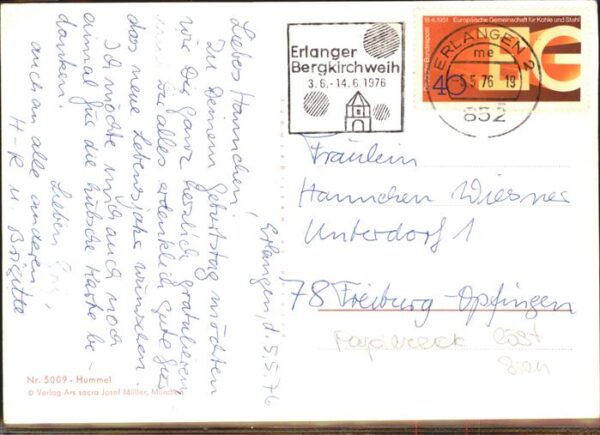 Erlangen, d. 5.5.76
Liebes Hannchen!
Zu Deinem Geburtstag möchten
wir Dir ganz herzlich gratulieren
und Dir alles erdenklich Gute für
das neue Lebensjahr wünschen.
Ich möchte mich auch noch
einmal für die hübsche Karte be-
danken.
Lieben
auch an alle anderen
H-R u Brigitte
Nr. 5009 - Hummel
© Verlag Ars sacra Josef Müller, München
Erlanger
Bergkirchweih
3.6.-14.6.1976
ERLANGEN 2
me
5.5.76 18
852
18.4.1951 Europäische Gemeinschaft für Kohle und Stahl
Deutsche Bundespost
40
Fräulein
Hannchen Wiesner
Unterdorf 1
78 Freiburg-Opfingen